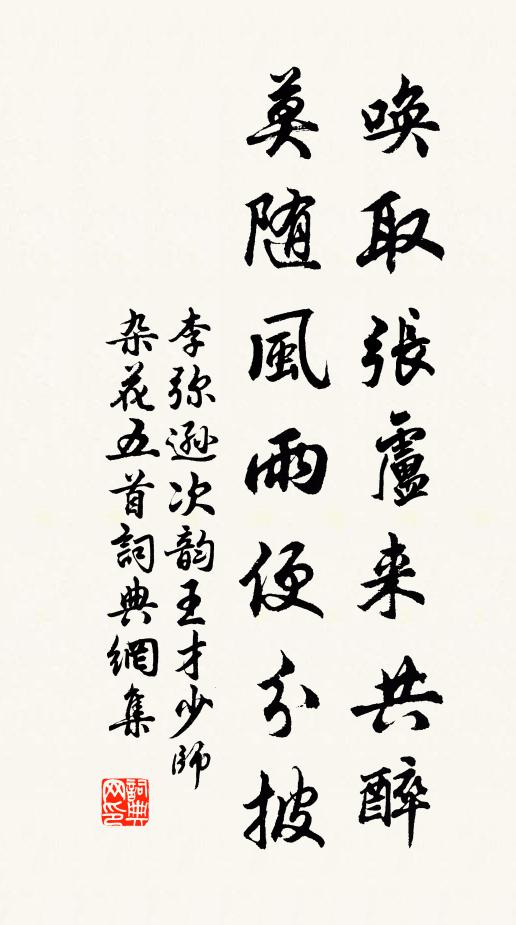 唤取張盧来共醉
莫随風雨便分披
李弥遜次韵王才少師
杂花五首詞典網集
詞典
网印